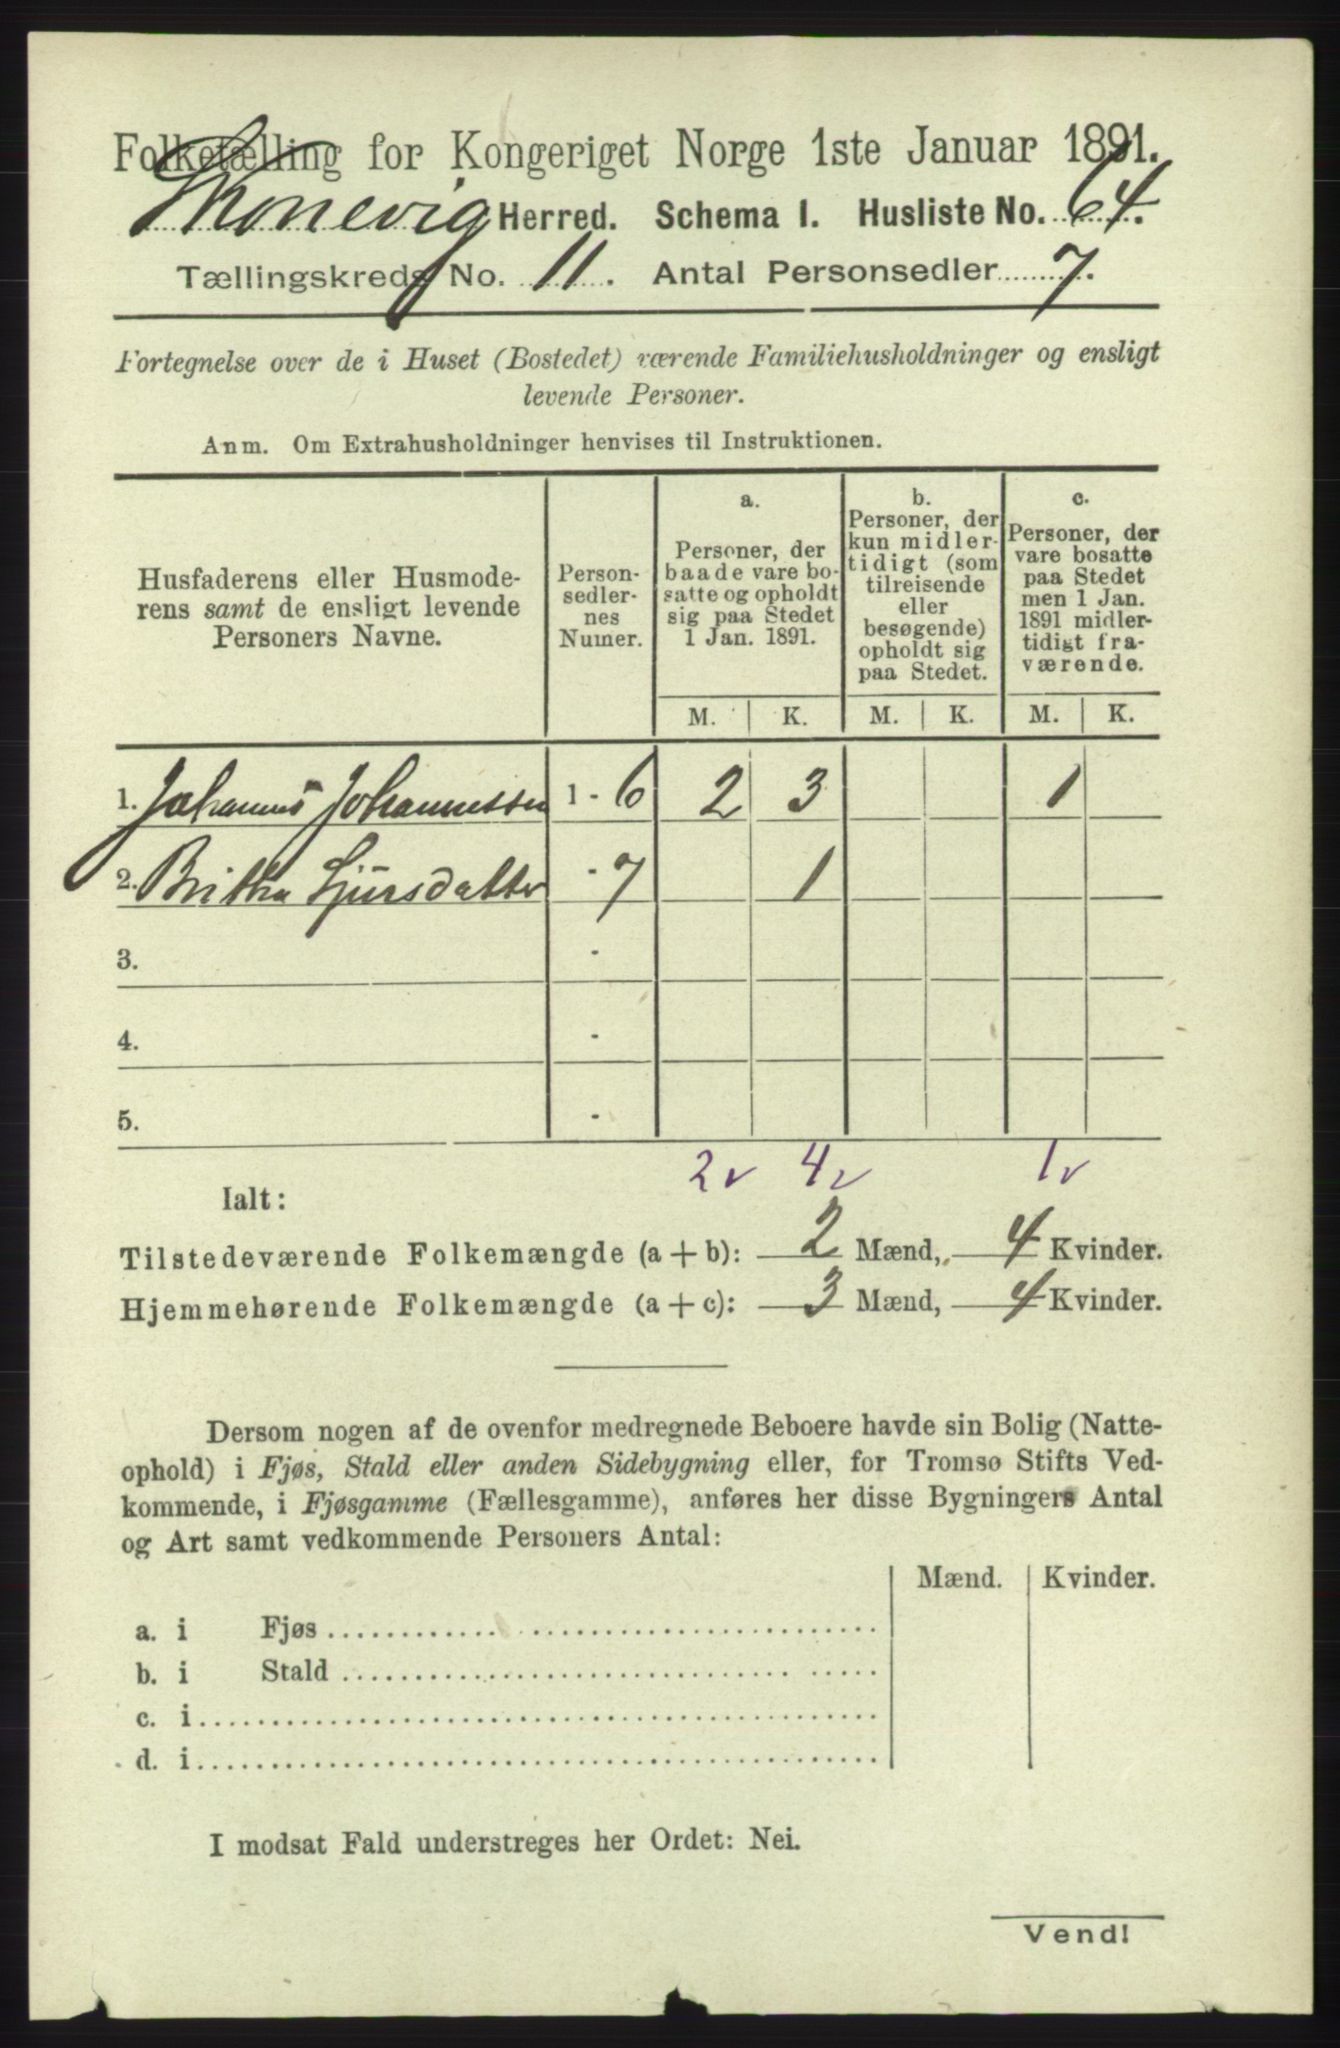 Folketælling for Kongeriget Norge 1ste Januar 1891.
Skonevig Herred. Schema I. Husliste No. 64.
Tællingskreds No. 11. Antal Personsedler 7.
Fortegnelse over de i Huset (Bostedet) værende Familiehusholdninger og ensligt
levende Personer.
Anm. Om Extrahusholdninger henvises til Instruktionen.
Husfaderens eller Husmode-
rens samt de ensligt levende
Personers Navne.
Person-
sedler-
nes
Numer.
a.
Personer, der
baade vare bo-
satte og opholdt
sig paa Stedet
1 Jan. 1891.
b.
Personer, der
kun midler-
tidigt (som
tilreisende
eller
besøgende)
opholdt sig
paa Stedet.
c.
Personer, der
vare bosatte
paa Stedet
men 1 Jan.
1891 midler-
tidigt fra-
værende.
M. K. M. K. M. K.
1. Johannes Johannessen 1 - 6 2 3 1
2. Britha Sjursdatter - 7 1
3. -
4. -
5. -
2 v 4 v 1 v
Ialt:
Tilstedeværende Folkemængde (a + b): 2 Mænd, 4 Kvinder.
Hjemmehørende Folkemængde (a + c): 3 Mænd, 4 Kvinder.
Dersom nogen af de ovenfor medregnede Beboere havde sin Bolig (Natte-
ophold) i Fjøs, Stald eller anden Sidebygning eller, for Tromsø Stifts Ved-
kommende, i Fjøsgamme (Fællesgamme), anføres her disse Bygningers Antal
og Art samt vedkommende Personers Antal:
Mænd. Kvinder.
a. i Fjøs
b. i Stald
c. i
d. i
I modsat Fald understreges her Ordet: Nei.
Vend!